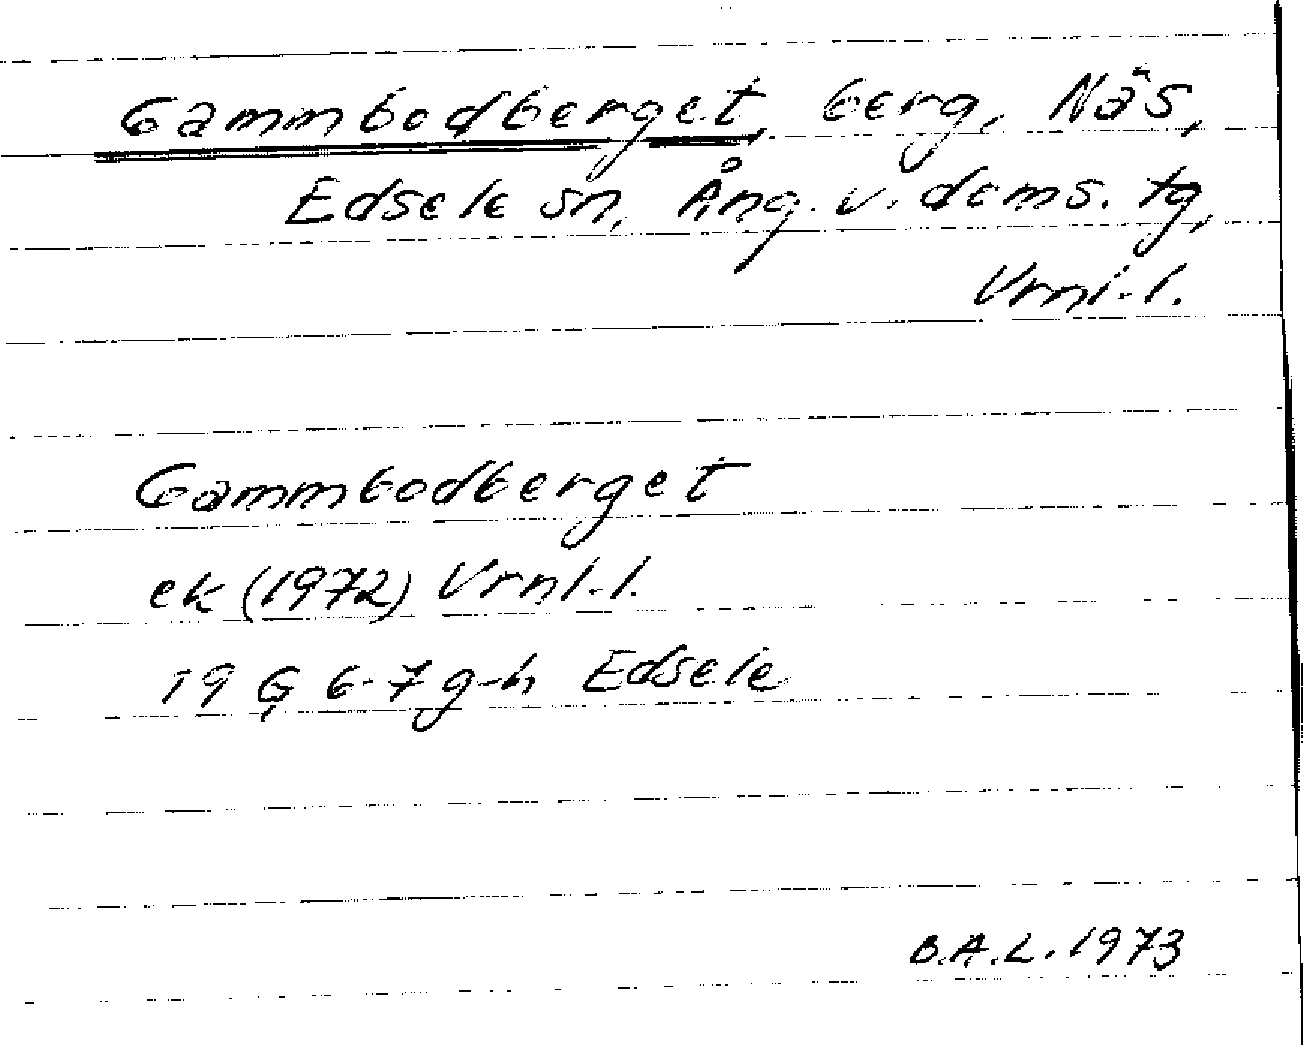 Gammbodberget, berg, Näs,
Edsele sn, Ång. v. doms. tg,
Vrnl-l.
Gammbodberget
ek (1972) Vrnl-l.
19 G 6-7 g-h Edsele
B.A.L. 1973